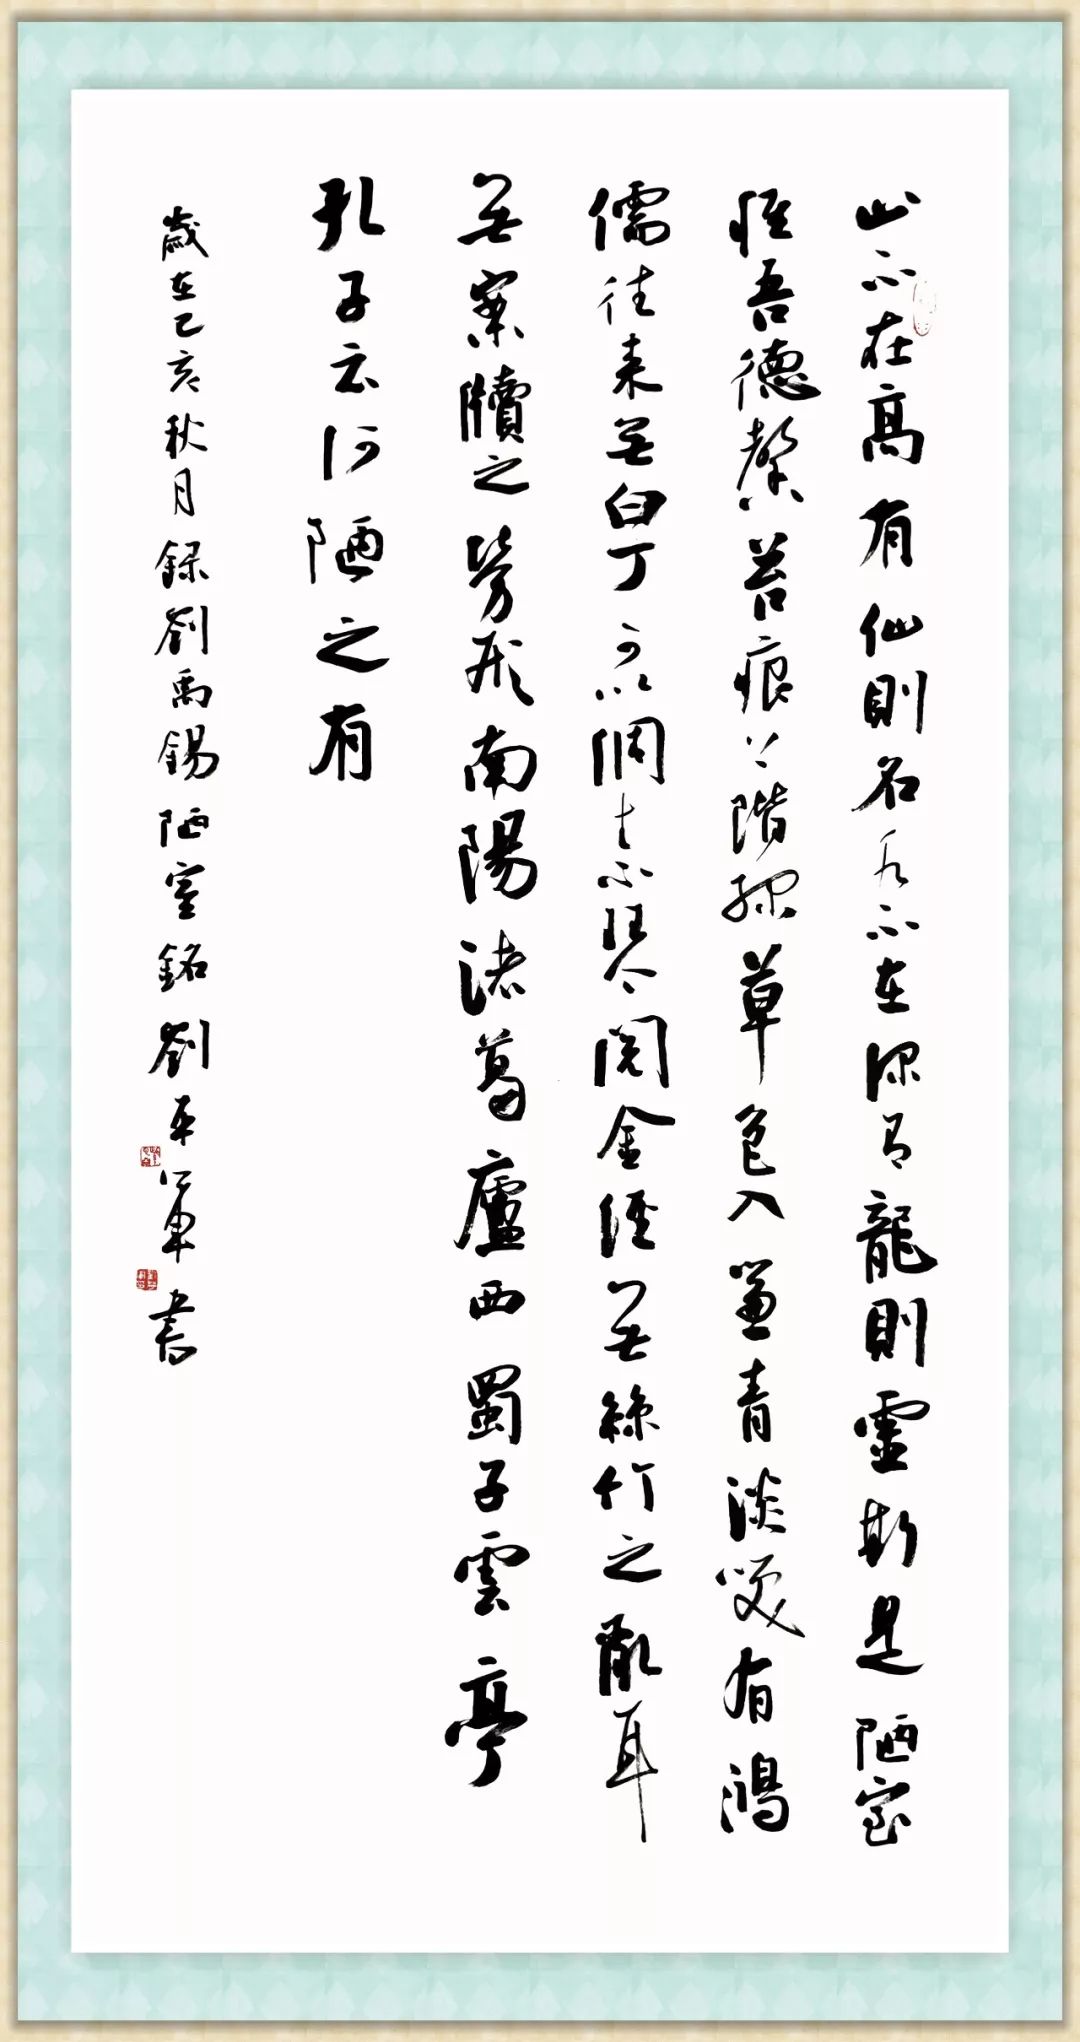 山不在高有仙則名水不在深有龍則靈斯是陋室
惟吾德馨苔痕上階綠草色入簾青淡笑有鴻
儒往来無白丁可以調素琴閱金經無絲竹之亂耳
無案牘之勞形南陽諸葛廬西蜀子雲亭
孔子云何陋之有
歲在己亥秋月錄劉禹錫陋室銘劉平軍書